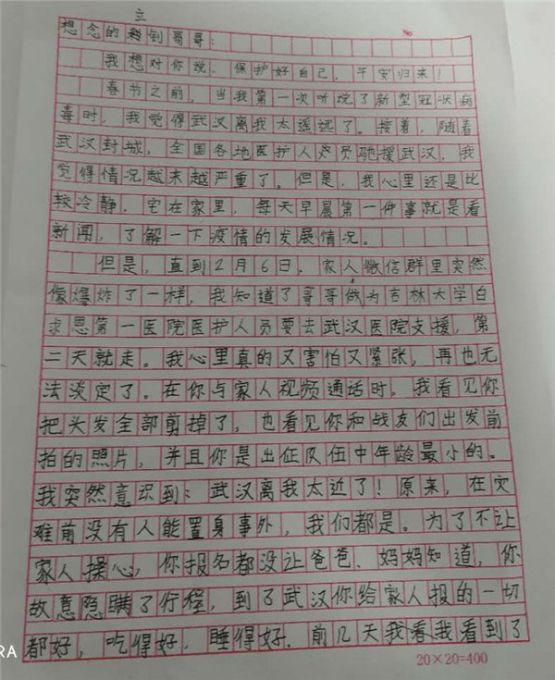 立
想念的 到哥哥：
No
我想对你说，保护好自己，平安归来！
春节之前，当我第一次听说了新型冠状病
毒时，我觉得武汉离我太遥远了。接着，随着
武汉封城，全国各地医护人员驰援武汉，我
觉得情况越来越严重了。但是，我心里还是比
较冷静，宅在家里，每天早晨第一件事就是看
新闻，了解一下疫情的发展情况。
但是，直到2月6日，家人微信群里突然
像爆炸了一样，我知道了哥哥做为吉林大学白
求恩第一医院医护人员要去武汉医院支援，第
二天就走。我心里真的又害怕又紧张，再也无
法淡定了。在你与家人视频通话时，我看见你
把头发全部剪掉了，也看见你和战友们出发前
拍的照片，并且你是出征队伍中年龄最小的。
我突然意识到：武汉离我太近了！原来，在灾
难前没有人能置身事外，我们都是。为了不让
家人操心，你报名都没让爸爸、妈妈知道，你
故意隐瞒了行程，到了武汉你给家人报的一切
都好，吃得好，睡得好。前几天我看我看到了
20×20=400
RA